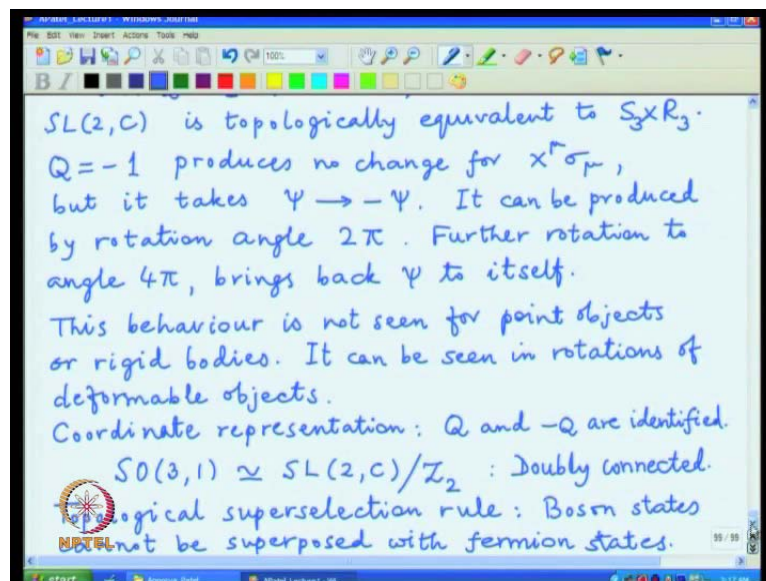 APatel_Lecture1 - Windows Journal
File Edit View Insert Actions Tools Help
100%
B I
SL(2,C) is topologically equivalent to S₃×R₃.
Q=-1 produces no change for x^μσ_μ,
but it takes Ψ → -Ψ. It can be produced
by rotation angle 2π. Further rotation to
angle 4π, brings back Ψ to itself.
This behaviour is not seen for point objects
or rigid bodies. It can be seen in rotations of
deformable objects.
Coordinate representation: Q and -Q are identified.
SO(3,1) ≃ SL(2,C)/Z₂ : Doubly connected.
Topological superselection rule: Boson states
cannot be superposed with fermion states.
NPTEL
99/99
start